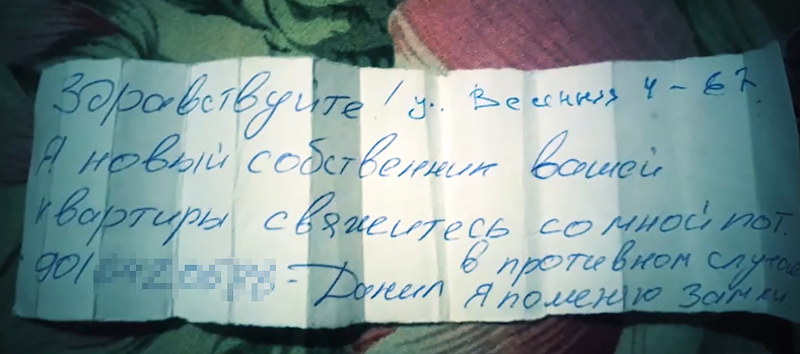 Здравствуйте! у. Весенняя 4-67
Я новый собственник вашей
квартиры свяжитесь со мной по т.
901 - Данил в противном случае
Я поменяю замки